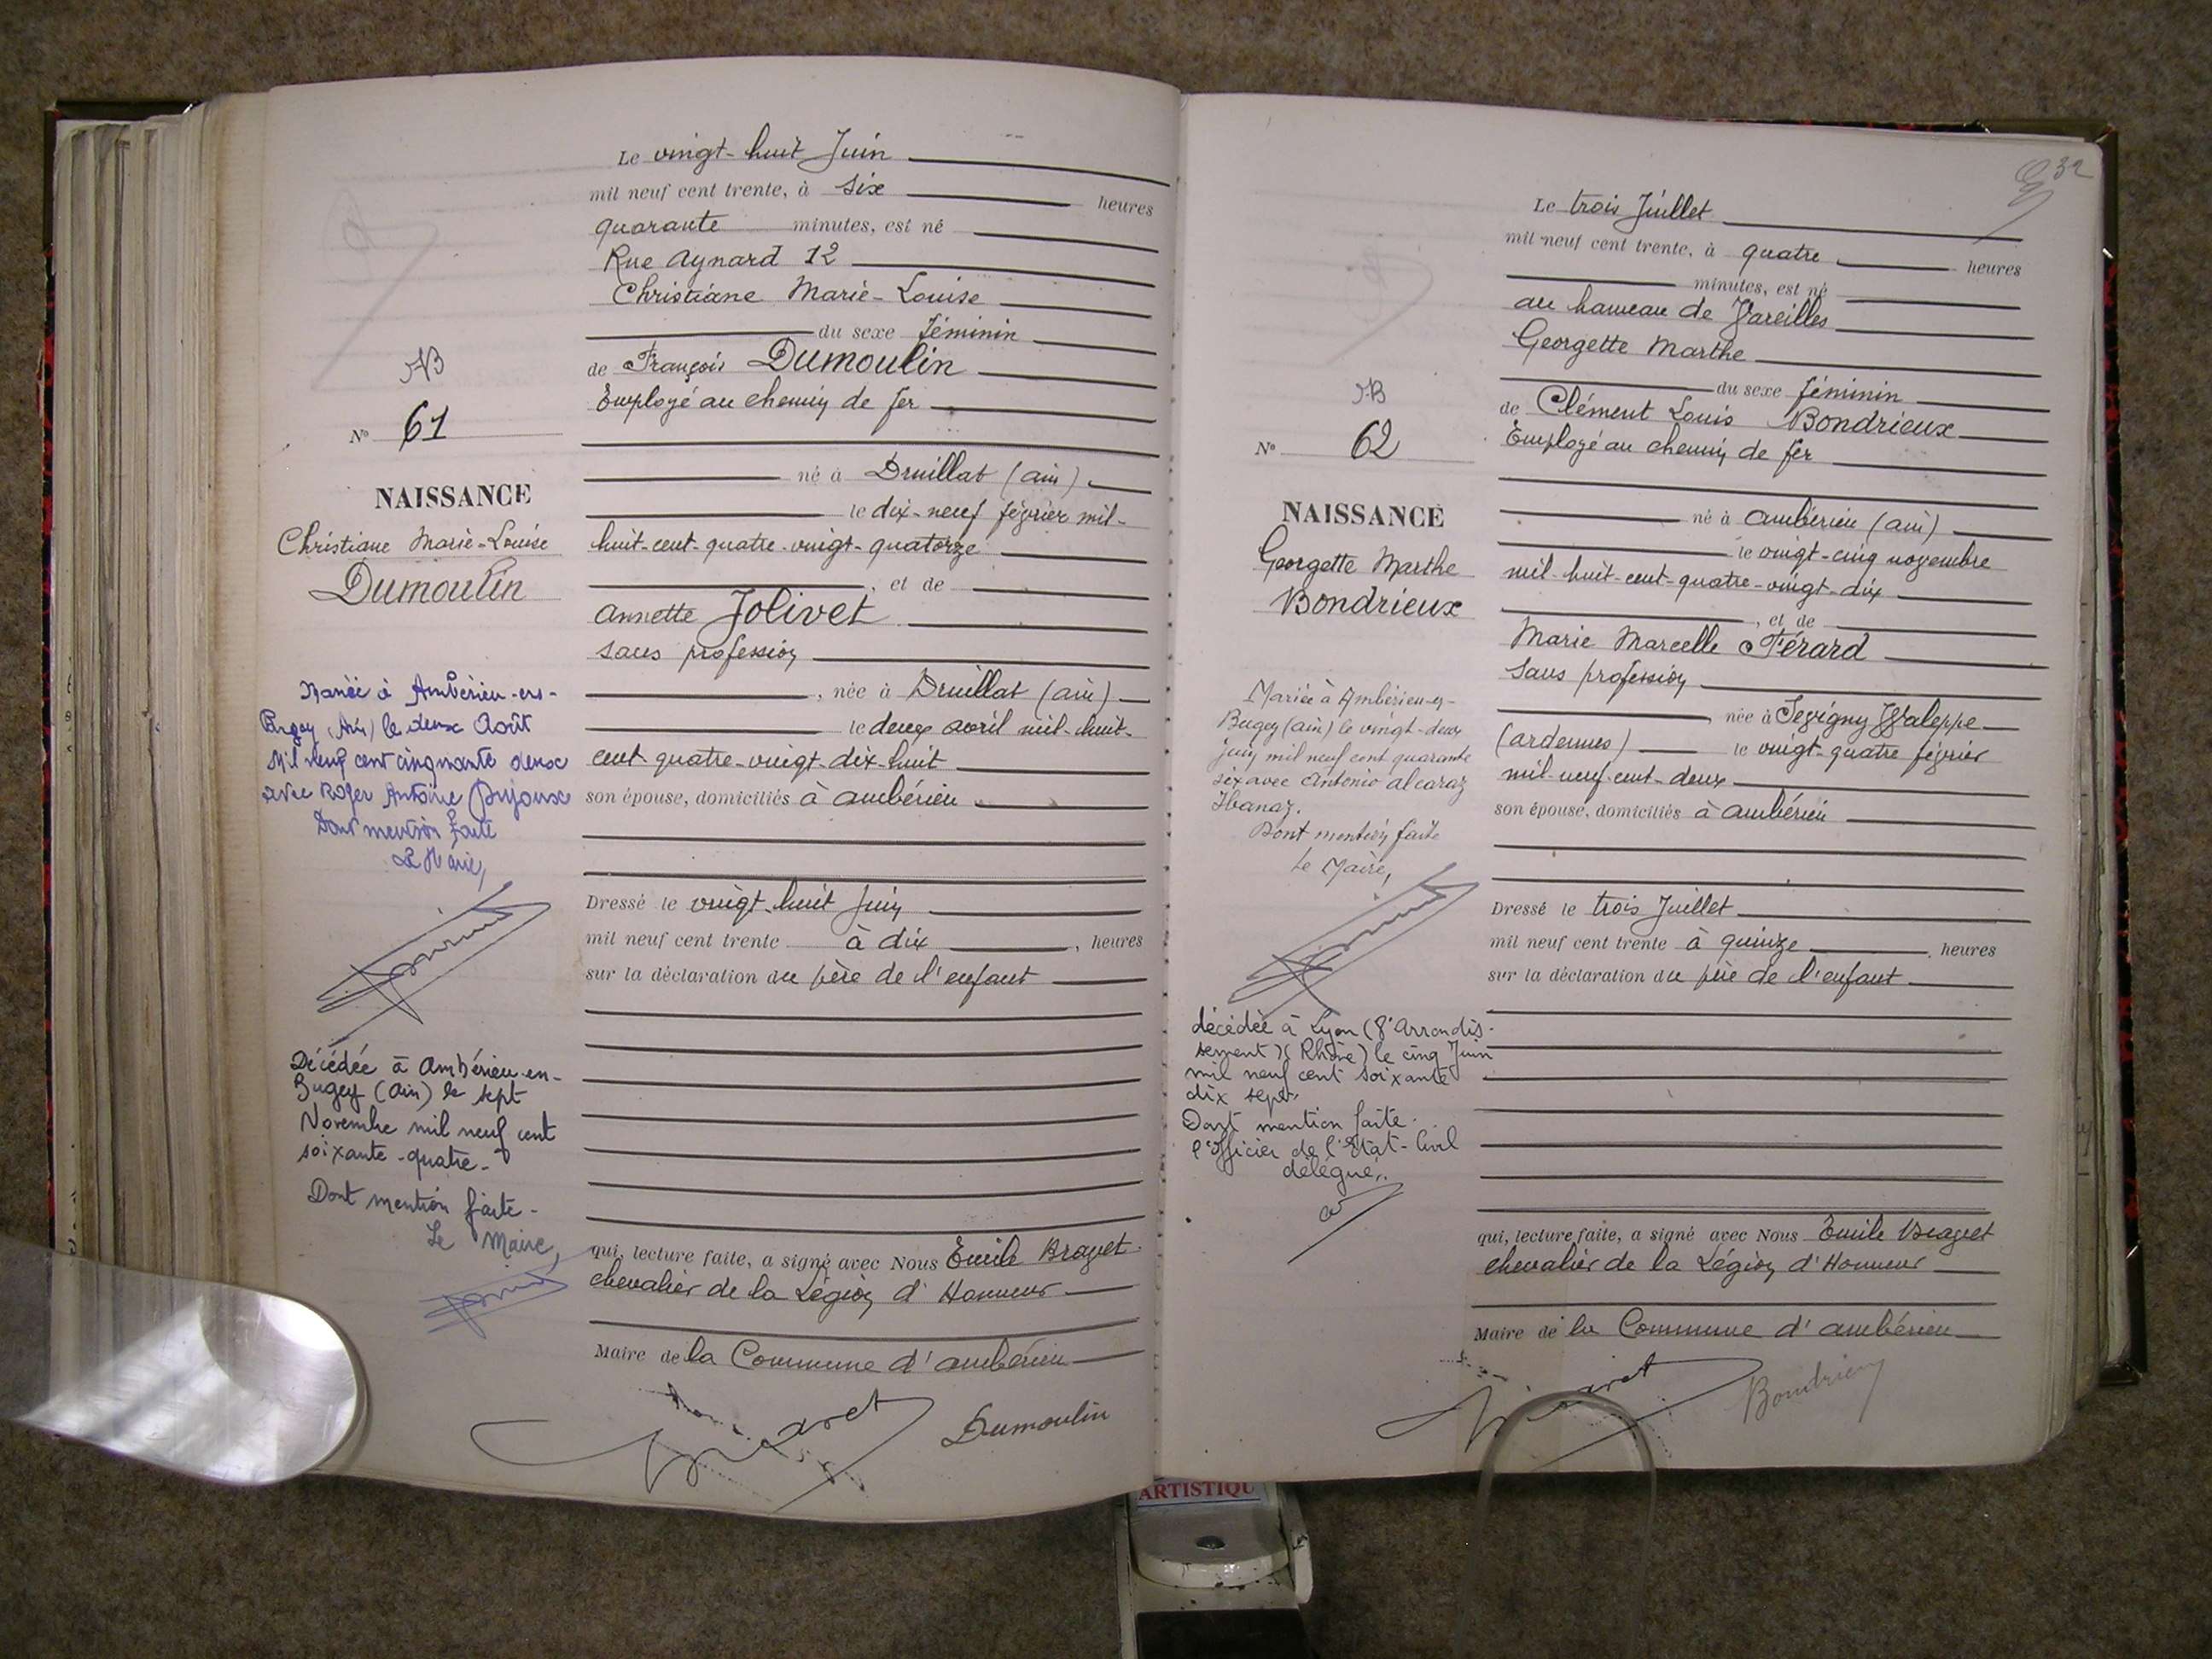 Le vingt-huit Juin
mil neuf cent trente, à six heures
quarante minutes, est né
Rue Aynard 12
Christiane Marie-Louise
du sexe féminin
de François Dumoulin
Employé au chemin de fer
né à Druillat (ain)
le dix-neuf février mil-
huit-cent-quatre-vingt-quatorze
, et de
annette Jolivet
sans profession
, née à Druillat (ain)
le deux avril mil-huit-
cent-quatre-vingt-dix-huit
son épouse, domiciliés à ambérieu
Dressé le vingt-huit Juin
mil neuf cent trente à dix , heures
sur la déclaration du père de l'enfant
qui, lecture faite, a signé avec Nous Emile Bravet
chevalier de la Légion d'Honneur
Maire de la Commune d'ambérieu
Dumoulin
NB
No 61
NAISSANCE
Christiane Marie-Louise
Dumoulin
Mariée à Ambérieu-en-
Bugey (Ain) le deux Août
Mil neuf cent cinquante deux
avec Roger Antoine
Dont mention faite
Le Maire,
Décédée à Ambérieu-en-
Bugey (Ain) le sept
Novembre mil neuf cent
soixante-quatre-
Dont mention faite-
Le Maire,
32
Le trois Juillet
mil neuf cent trente, à quatre heures
minutes, est né
au hameau de Vareilles
Georgette Marthe
du sexe féminin
de Clément Louis Bondrieux
Employé au chemin de fer
né à ambérieu (ain)
le vingt-cinq novembre
mil-huit-cent-quatre-vingt-dix
, et de
Marie Marcelle Férard
sans profession
née à Sevigny Waleppe
(ardennes) le vingt-quatre février
mil-neuf-cent-deux
son épouse, domiciliés à ambérieu
Dressé le trois Juillet
mil neuf cent trente à quinze , heures
sur la déclaration du père de l'enfant
qui, lecture faite, a signé avec Nous Emile Bravet
chevalier de la Légion d'Honneur
Maire de la Commune d'ambérieu
Bondrieux
NB
No 62
NAISSANCE
Georgette Marthe
Bondrieux
Mariée à Ambérieu-en-
Bugey (ain) le vingt-deux
juin mil neuf cent quarante
six avec Antonio alcaraz
Ibanaz.
Dont mention faite
Le Maire,
décédée à Lyon (8e Arrondis-
sement) (Rhône) le cinq Juin
mil neuf cent soixante
dix sept.
Dont mention faite.
l'Officier de l'Etat-Civil
délégué,
ARTISTIQU